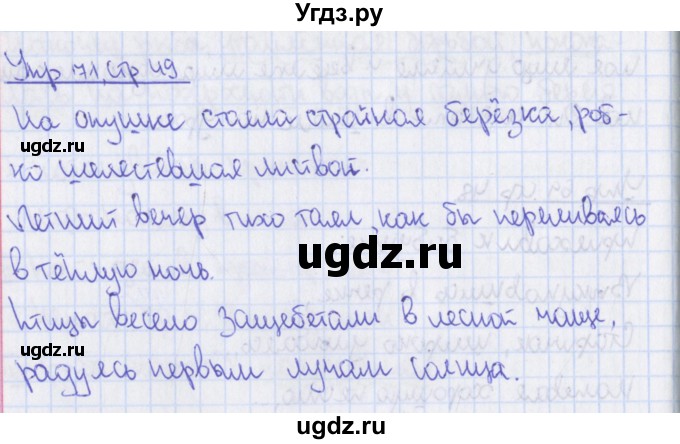 Угдз.ру
Упр 71, стр 49
На опушке стояла стройная берёзка, роб-
gdz.ru
ugdz.ru
ко шелестевшая листвой.
Летний вечер тихо таял, как бы переливаясь
ugdz.ru
в тёплую ночь.
ugdz.ru
Птицы весело защебетали в лесной чаще,
ugdz.ru
ugdz.ru
радуясь первым лучам солнца.